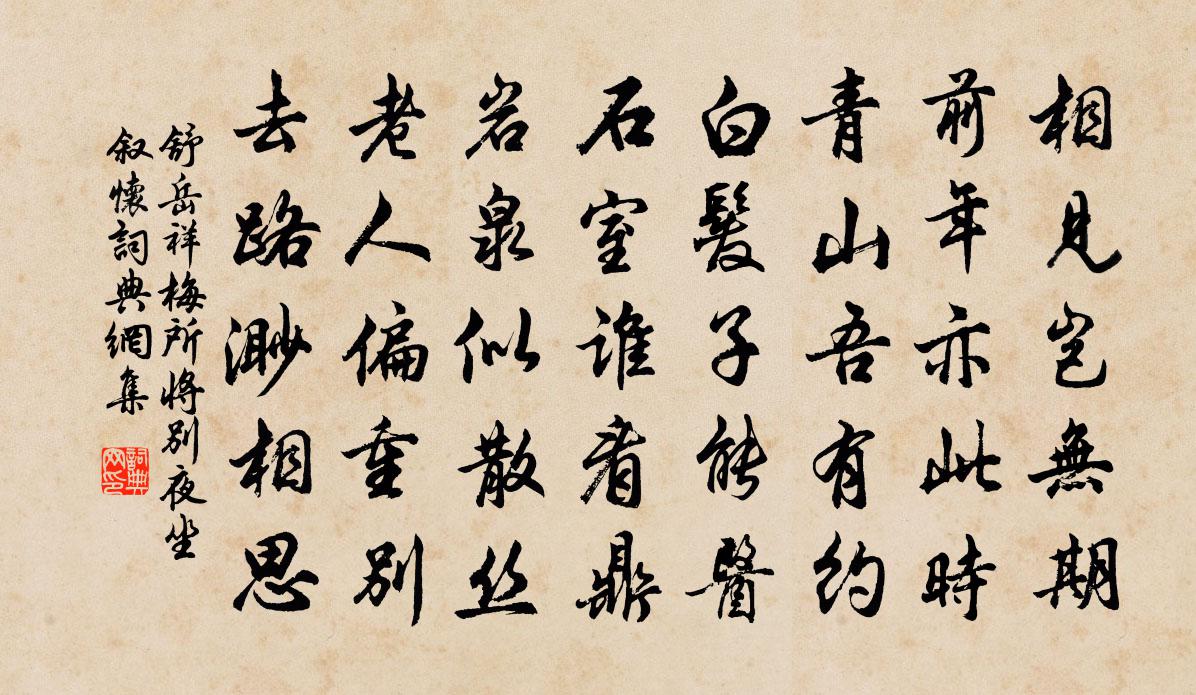 相見豈無期
前年亦此時
青山吾有約
白髮子能醫
石室誰看鼎
岩泉似散丝
老人偏重別
去路渺相思
舒岳祥梅所将別夜坐
叙懷詞典網集
詞典网印